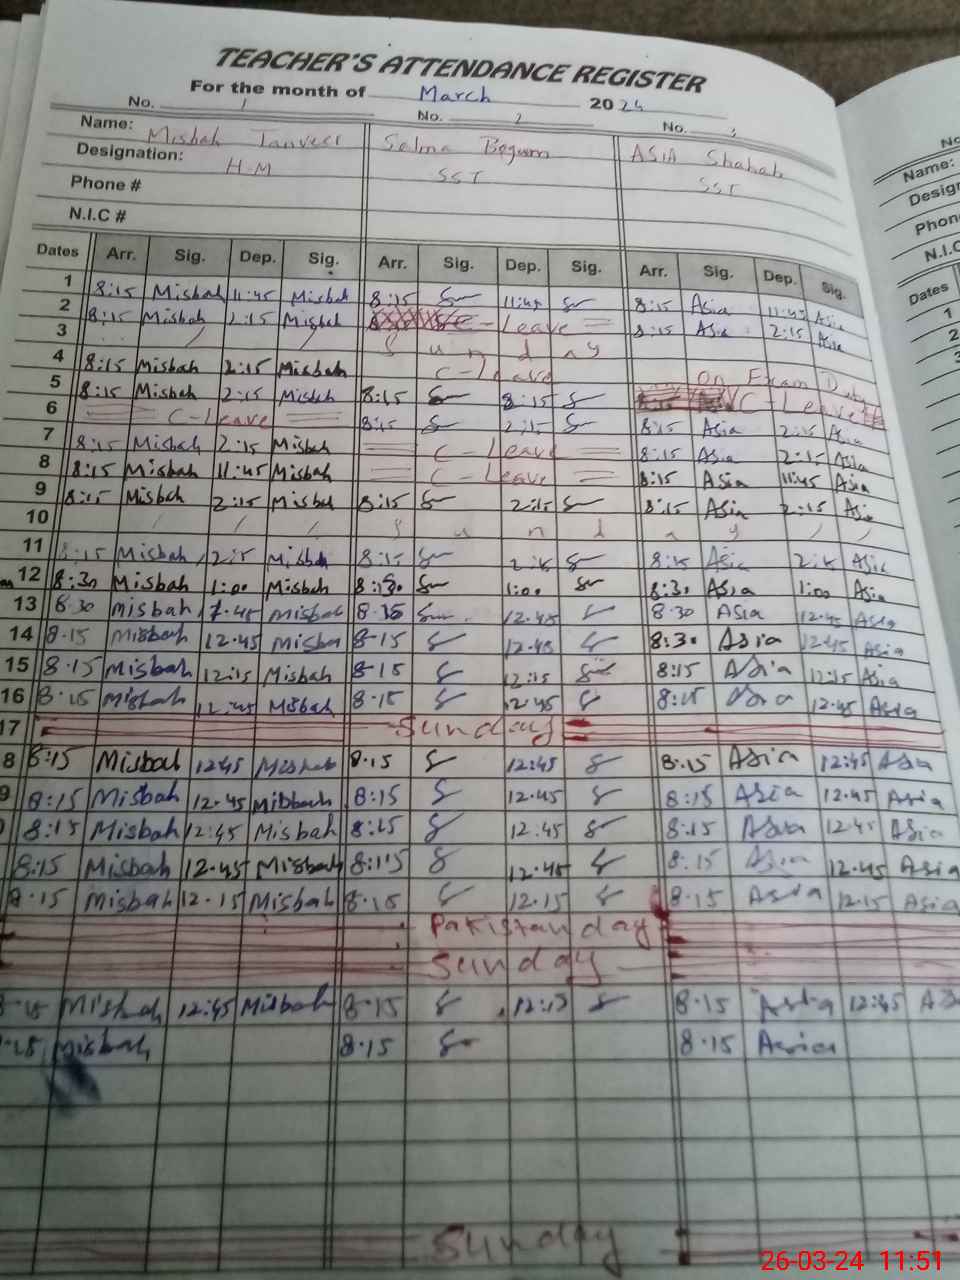 TEACHER'S ATTENDANCE REGISTER
For the month of March 2024
No. 1 No. 2 No. 3
Name: Misbah Tanveer Selma Begum ASIA Shahab
Designation: H.M SST SST
Phone #
N.I.C #
Dates Arr. Sig. Dep. Sig. Arr. Sig. Dep. Sig. Arr. Sig. Dep. Sig.
1 8:15 Misbah 11:45 Misbah 8:15 11:45 8:15 Asia 11:45 Asia
2 8:15 Misbah 2:15 Misbah C-Leave 8:15 Asia 2:15 Asia
3 Sunday
4 8:15 Misbah 2:15 Misbah C-Leave On Exam Duty
5 8:15 Misbah 2:15 Misbah 8:15 2:15 C-Leave
6 C-Leave 8:15 2:15 8:15 Asia 2:15 Asia
7 8:15 Misbah 2:15 Misbah C-Leave 8:15 Asia 2:15 Asia
8 8:15 Misbah 11:45 Misbah C-Leave 8:15 Asia 11:45 Asia
9 8:15 Misbah 2:15 Misbah 8:15 2:15 8:15 Asia 2:15 Asia
10 Sunday
11 8:15 Misbah 2:15 Misbah 8:15 2:15 8:15 Asia 2:15 Asia
12 8:30 Misbah 1:00 Misbah 8:30 1:00 8:30 Asia 1:00 Asia
13 8.30 Misbah Misbah 12.45 8.30 ASIA 12.45 Asia
14 8.15 Misbah 12.45 Misba 8-15 12.45 8:30 Asia 12:45 Asia
15 8.15 Misbah 12:15 Misbah 8-15 12:15 8:15 Asia 12:15 Asia
16 8.15 Misbah 12:45 Misbah 8.15 12.45 8:15 Asia 12.45 Asia
17 Sunday
8 8:15 Misbah 1245 Misbah 8.15 12:45 8.15 Asia 12:45 Asia
9 8:15 Misbah 12.45 Misbah 8:15 12.45 8:15 Asia 12.45 Asia
8:15 Misbah 12:45 Misbah 8:15 12.45 8:15 Asia 12.45 Asia
8:15 Misbah 12.45 Misbah 8:15 12.45 8:15 Asia 12.45 Asia
8.15 Misbah 12.15 Misbah 8.15 12.15 8.15 Asia 12.15 Asia
Pakistan day
Sunday
Misbah 12:45 Misbah 8.15 8.15 Asia 12:45
Misbah 8.15 8.15 Asia
Sunday
No
Name:
Desig
Phon
N.I.C
Dates
1
2
3
26-03-24 11:51